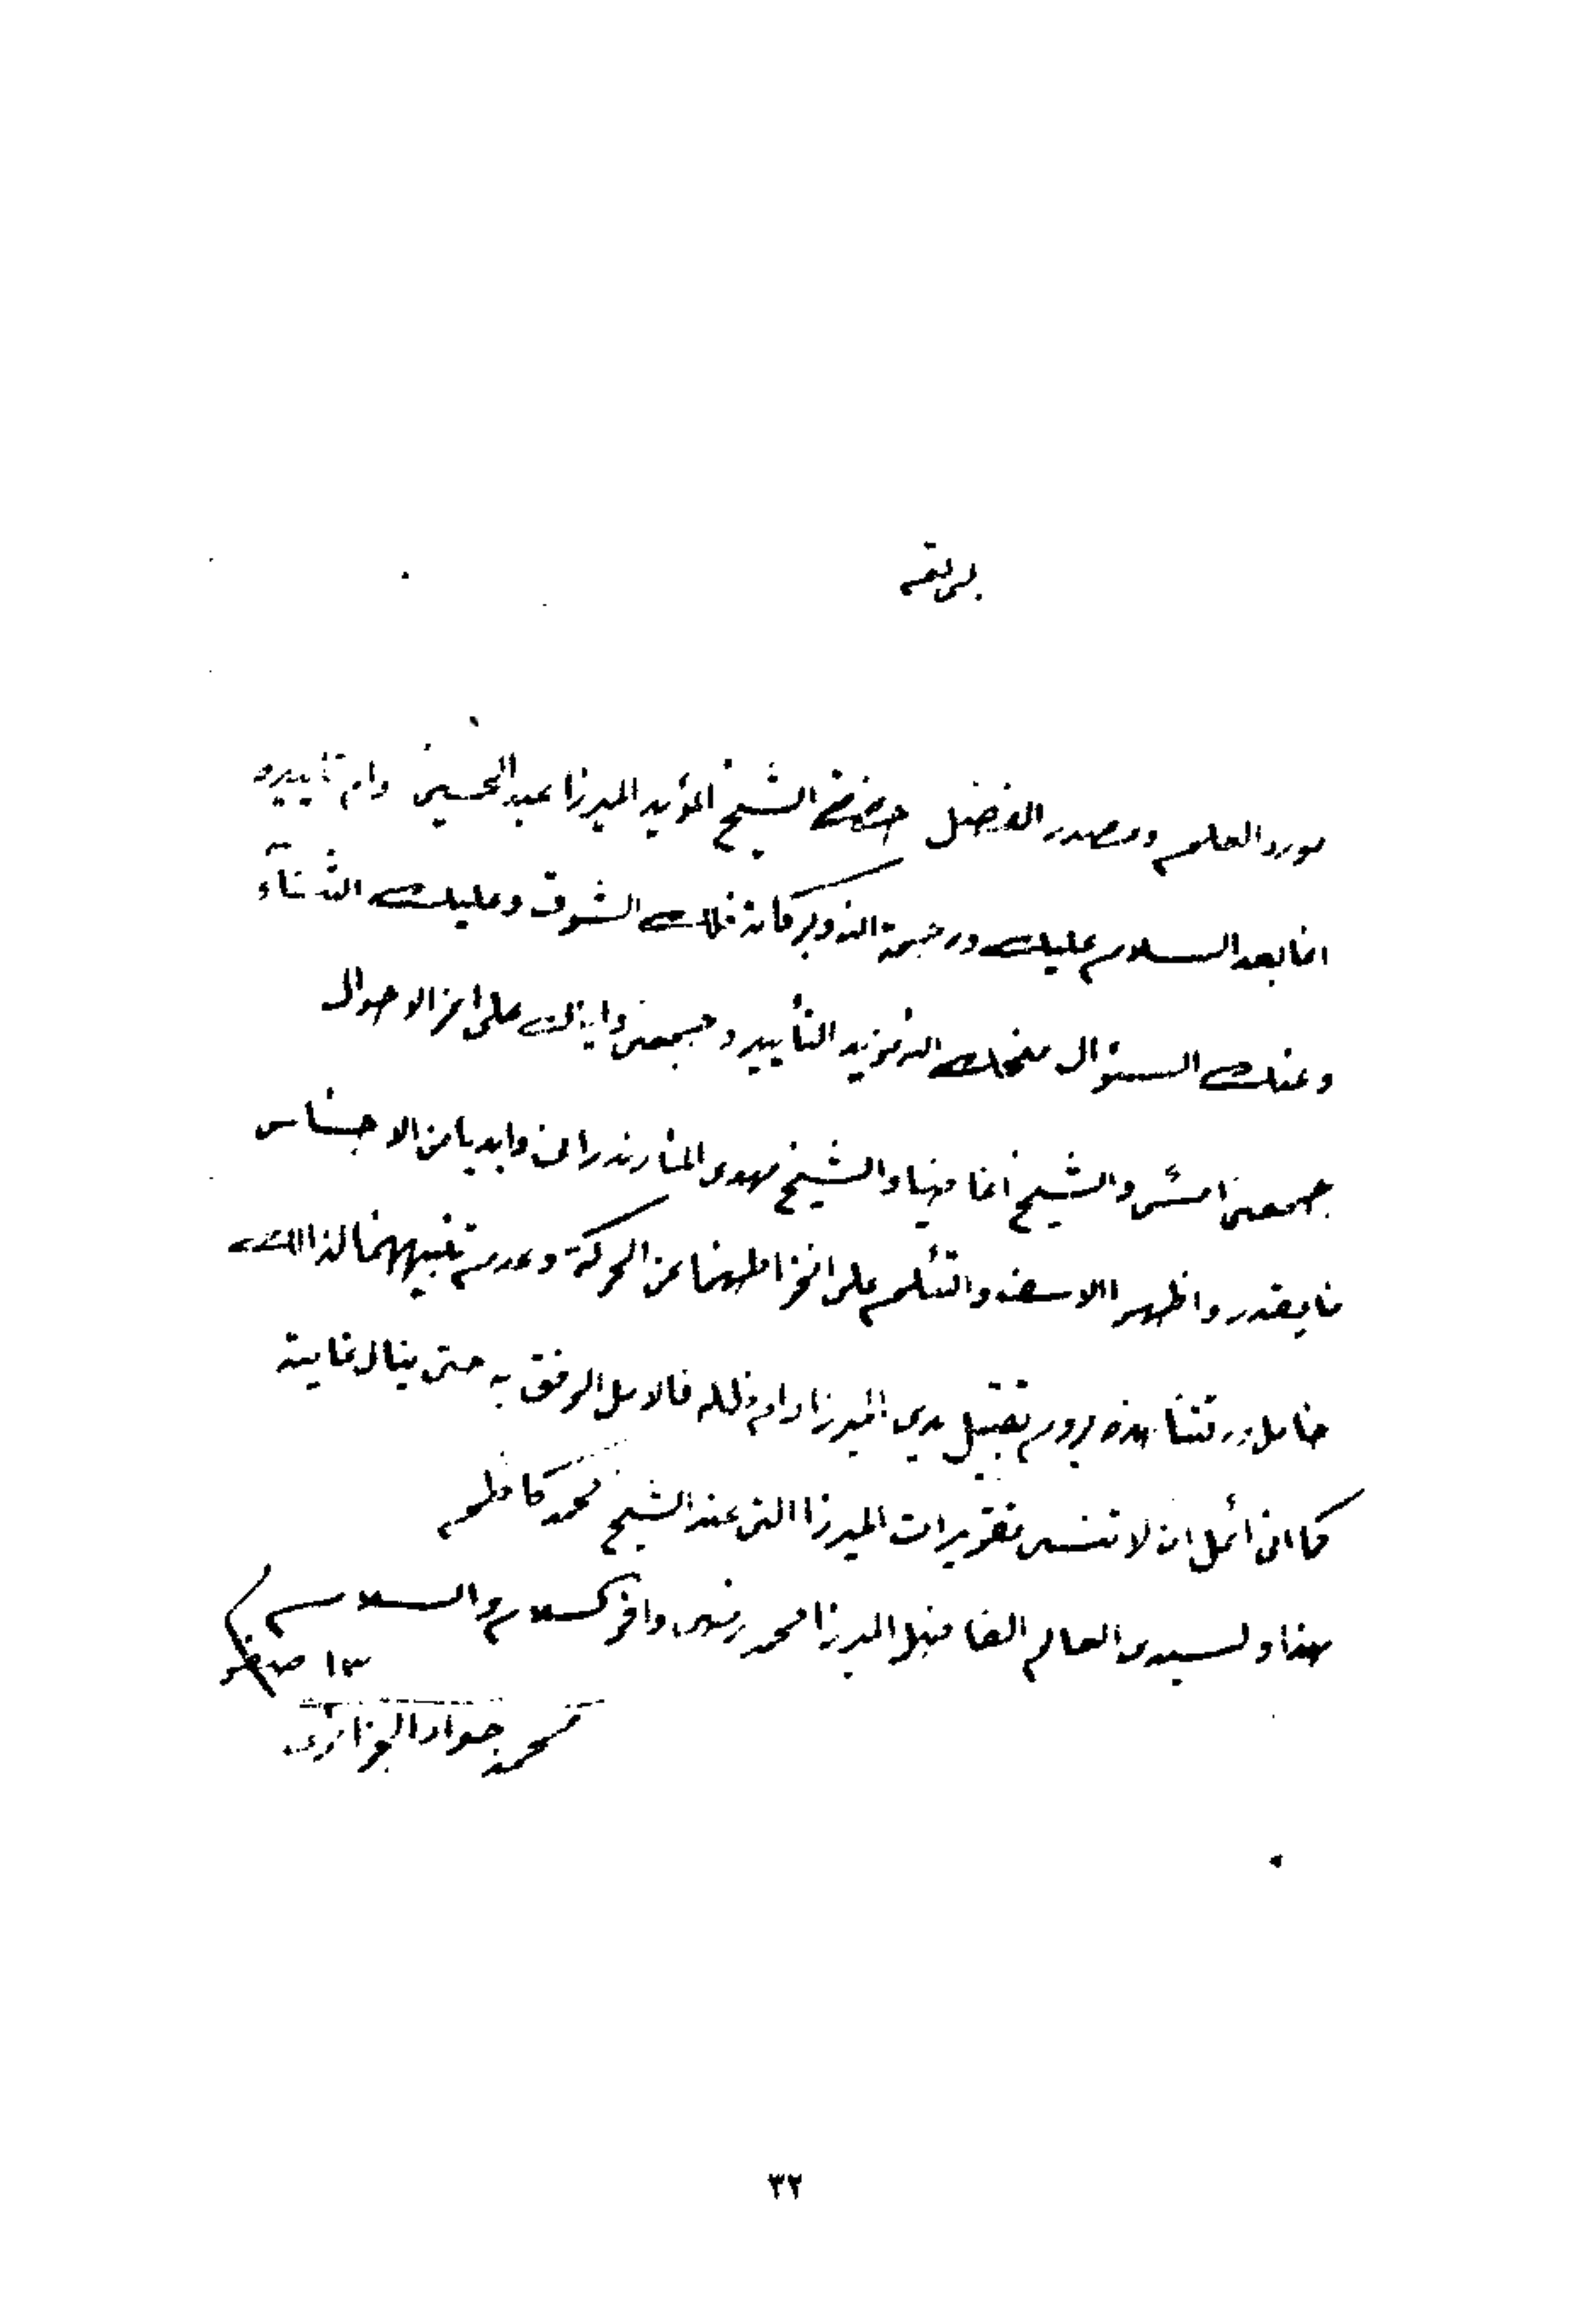 مورد العلم ومصدر الفضل حضرة الشيخ المؤيد الميرزا عبد الحسين دام تأييده
اما بعد السلام عليك ورحمة الله وبركاته فلك الشوق وعليك الثناء
وعنك السؤال منحك الله مزيد التأييد وجمعني واياك على اعز الاحوال
جمعني امس والشيخ اغا ضيا والشيخ مهدي المازندراني وابديا من الاحساس
ما يقدر واظهرا الاسف والتألم على انخراطهما عن الحركة وعدم تنبيههما لذلك
حامل ورقتنا هذه يروم تقبيل يدي الميرزا دام ظله فالامل الرفق به حتى ينال غايته
كما اني أمل ان لا تنسى تقريرات الميرزا التي عند الشيخ محمد كاظم
هذا ولسيدي العالم الفاضل الميرزا محمد رضى وافر السلام والسلام
١٣ صفر
محمد جواد الجزائري
٣٢